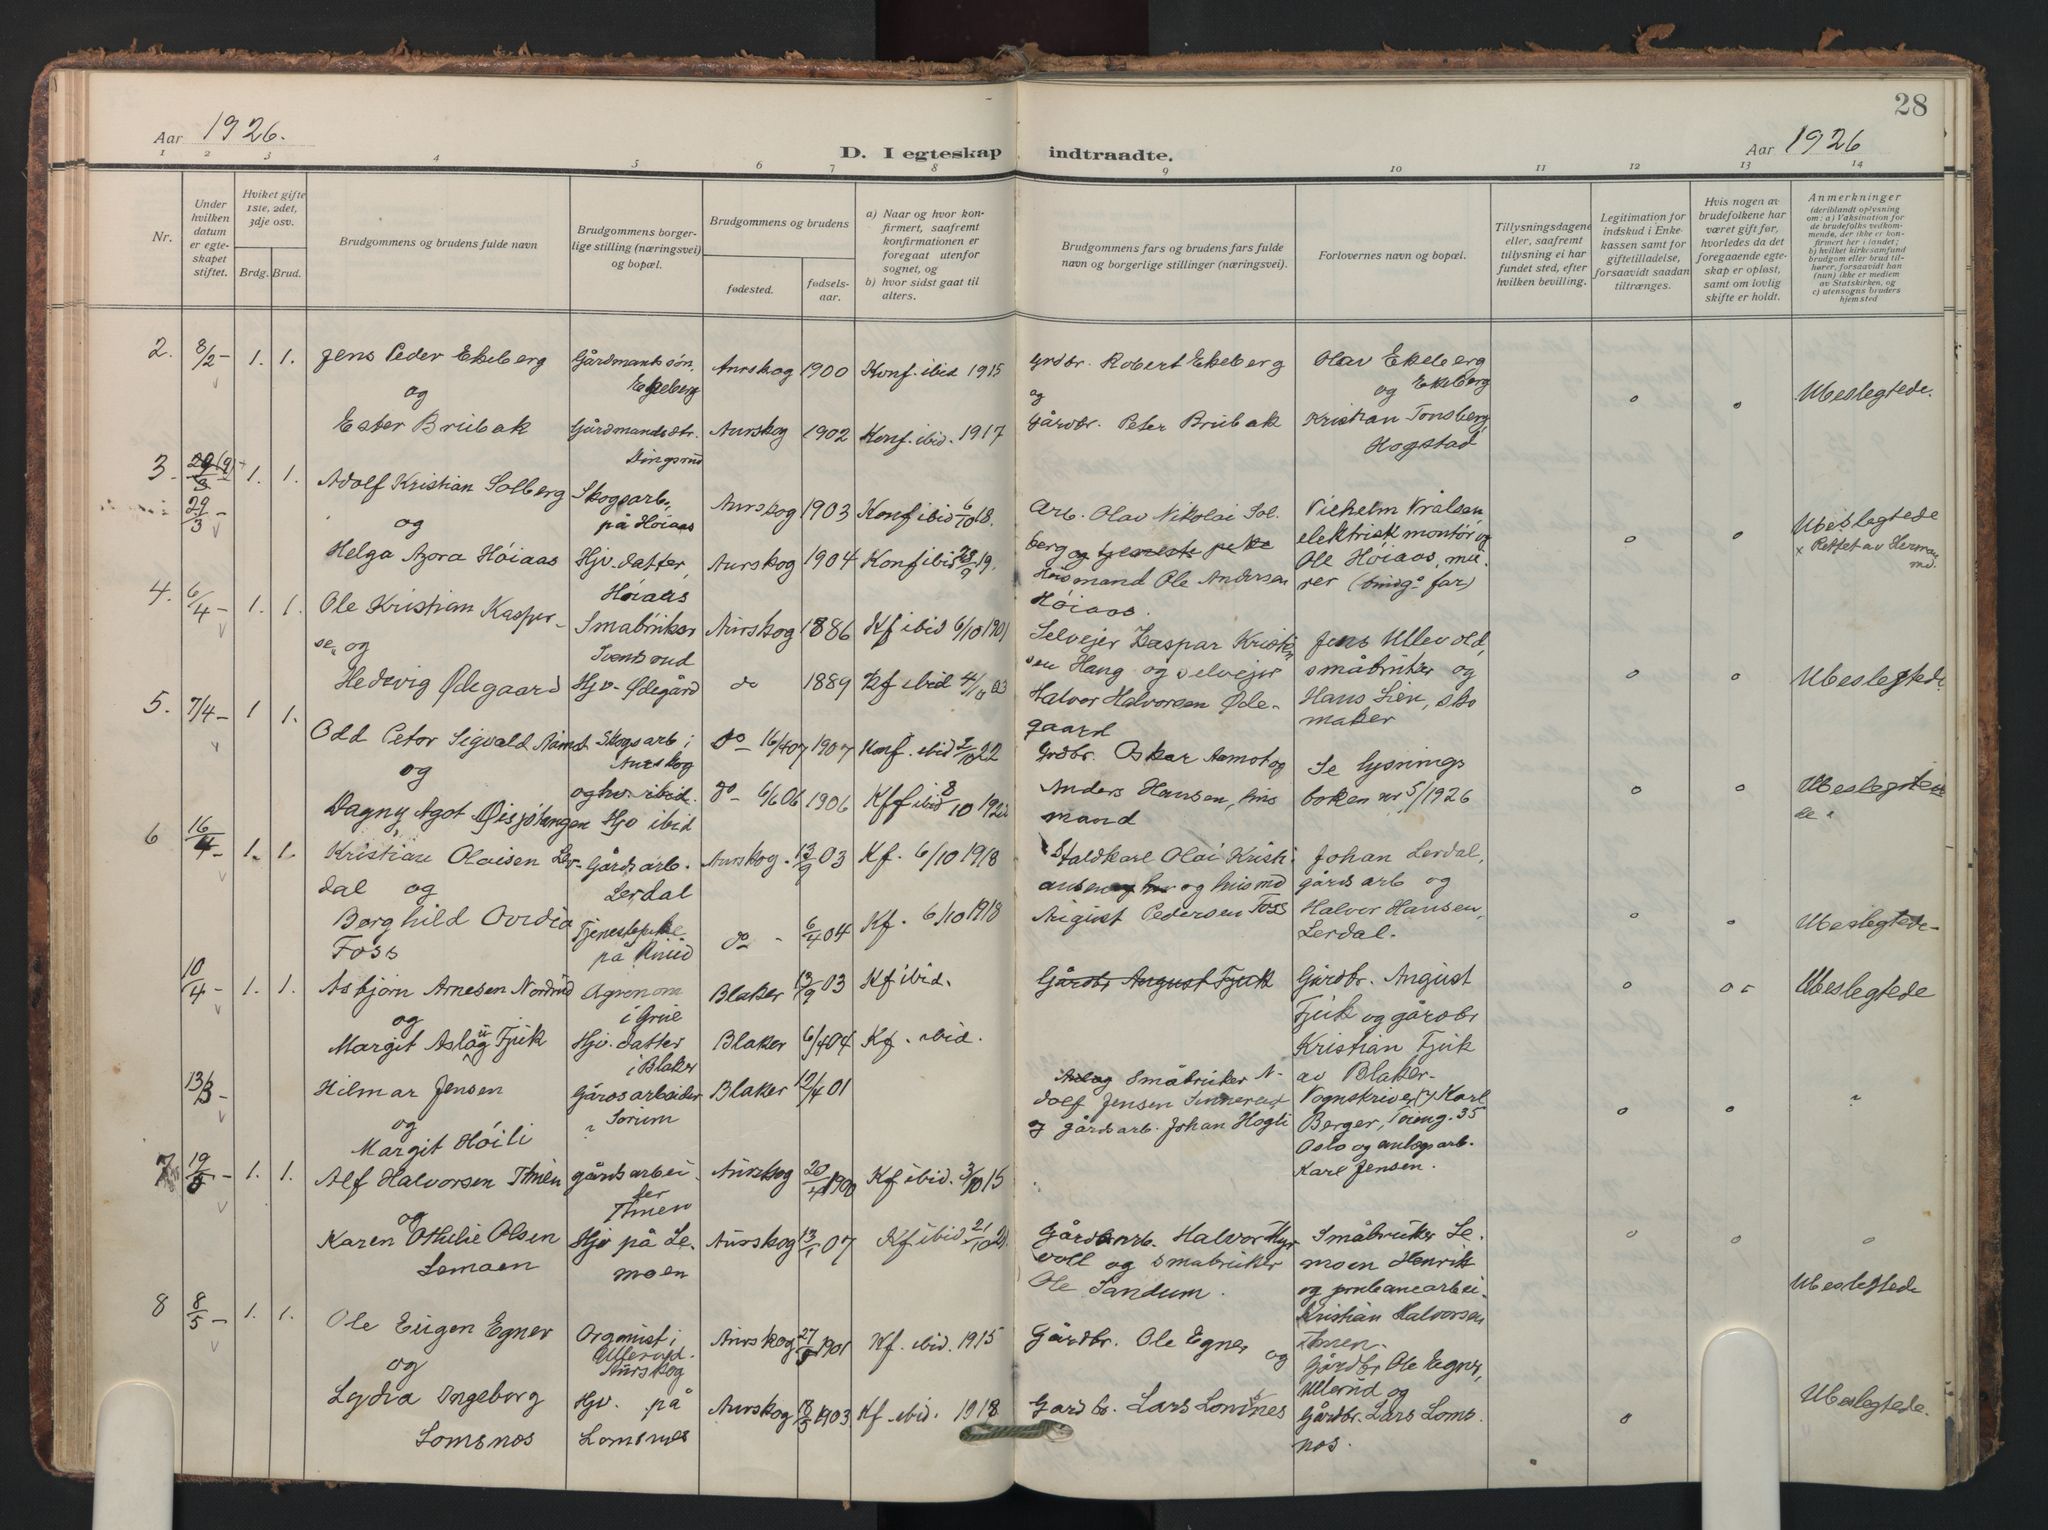 28
Aar 1926.
D. I egteskap indtraadte.
Aar 1926
1 2 3 4 5 6 7 8 9 10 11 12 13 14
Nr.
Under
hvilken
datum
er egte-
skapet
stiftet.
Hviket gifte
1ste, 2det,
3dje osv.
Brdg. Brud.
Brudgommens og brudens fulde navn
Brudgommens borger-
lige stilling (næringsvei)
og bopæl.
Brudgommens og brudens
fødested.
fødsels-
aar.
a) Naar og hvor kon-
firmert, saafremt
konfirmationen er
foregaat utenfor
sognet, og
b) hvor sidst gaat til
alters.
Brudgommens fars og brudens fars fulde
navn og borgerlige stillinger (næringsvei).
Forlovernes navn og bopæl.
Tillysningsdagene
eller, saafremt
tillysning ei har
fundet sted, efter
hvilken bevilling.
Legitimation for
indskud i Enke-
kassen samt for
giftetilladelse,
forsaavidt saadan
tiltrænges.
Hvis nogen av
brudefolkene har
været gift før,
hvorledes da det
foregaaende egte-
skap er opløst,
samt om lovlig
skifte er holdt.
Anmerkninger
(deriblandt oplysning
om: a) Vaksination for
de brudefolks vedkom-
mende, der ikke er kon-
firmert her i landet;
b) hvilket kirkesamfund
brudgom eller brud til-
hører, forsaavidt han
(hun) ikke er medlem
av Statskirken, og
c) utensogns bruders
hjemsted
2. 8/2 - 1. 1. Jens Peder Ekeberg
og
Ester Brubak
Gårdmands søn,
Ekeberg
Gårdmandsdtr.
Dingsrud
Aurskog 1900 Konf. ibid 1915
Aurskog 1902 Konf. ibid. 1917
Grdbr. Robert Ekeberg
og
Gårdbr. Peter Brubak
Olav Ekeberg
og Ekeberg
Kristian Tonsberg,
Hogstad
Ubeslegtede.
3. 29/3 - 1. 1. Adolf Kristian Solberg
og
Helga Azora Høiaas
Skogsarb.
på Høiaas
Hjv. datter,
Høiaas
Aurskog 1903 Konf ibid 6/10 18.
Aurskog 1904 Konf ibid 28/9 19.
Arb. Olav Nikolai Sol-
berg og tjeneste pike
Husmand Ole Andersen
Høiaas.
Vilhelm Vrålsen
elektrisk montør og
Ole Høiaas, mu-
rer (brudg° far)
Ubeslegtede
x Rettet av Herman
md.
4. 6/4 - 1. 1. Ole Kristian Kasper-
sen og
Hedvig Ødegaard
Småbruker
Svensrud
Hjv. Ødegård
Aurskog 1886 Kf ibid 6/10 1901
do 1889 Kf ibid 4/10 03
Selvejer Kaspar Kristen
sen Haug og selvejer
Halvor Halvorsen Øde-
gaard
Jens Ullevold,
småbruker og
Hans Lien, sko
maker
Ubeslegtede.
5. 7/4 - 1 1. Odd Petor Sigvald Aamot
og
Dagny Agot Øisjøtangen
Skogsarb i
Aurskog
og hv. ibid.
Hjv ibid
do - 16/4 07 1907 Konf. ibid 2/10 22
do - 6/6 06 1906 Kff ibid 3/10 192
Grdbr. Oskar Aamot og
Anders Hansen, hus
mand
Se lysnings
boken nr 5/1926
Ubeslegtede
6 16/4 - 1. 1. Kristian Olaisen Ler-
dal og
Borghild Ovidia
Foss
Gårdsarb.
Lerdal
Tjenestepike
på Ruud
Aurskog. 13/9 03 Kf. 6/10 1918
do - 6/4 04 Kf. 6/10 1918
Staldkarl Olai Kristi-
ansen og husmd
August Pedersen Foss
Johan Lerdal,
gårdsarb og
Halvor Hansen,
Lerdal.
Ubeslegtede-
10/4 - 1. 1. Asbjørn Arnesen Nordrud
og
Margit Aslaug Fjuk
Agronom
i Grue
Hjv. datter
i Blaker
Blaker 13/9 03 Kf ibid.
Blaker 6/4 04 Kf. ibid.
Gårdbr August Fjuk
Gårdbr. August
Fjuk og gårdbr
Kristian Fjuk
av Blaker-
Ubeslegtede
13/3 - Hilmar Jensen
og
Margit Høili
Gårdsarbeider
" Sørum
Blaker 12/4 01
Småbruker A-
dolf Jensen Sinnerud
og gårdsarb. Johan Hogli
Vognskriver (?) Karl
Berger, Tøieng. 35
Oslo og anlegsarb.
Karl Jensen.
"
7 19/5 - 1. 1. Alf Halvorsen Tmen
og
Karen Othilie Olsen
Lemoen
gårdsarbei-
der
Tmen
Hjv på Le-
moen
Aurskog 20/4 1900 Kf ibid. 3/10 15
Aurskog 13/1 07 Kf ibid 21/10 21
Gårdsarb. Halvor Myr
voll og småbruker
Ole Sandum.
Småbruker Le-
moen Henrik
og jernbanearbei-
Kristian Halvorsen
Tmen-
Ubeslegtede
8 8/5 - 1. 1. Ole Eugen Egner
og
Lydia Ingeborg
Lomsnes
Organist i
Ullerud.
Aurskog
Hjv. på
Lomsnes
Aurskog 27/8 1901 Kf. ibid. 1915
Aurskog 18/3 1903 Kf. ibid. 1918
Gårdbr. Ole Egner og
Gardbr. Lars Lomsnes
Gårdbr Ole Egner,
Ullerud og
Gårdbr. Lars Loms-
nes.
Ubeslegtede.